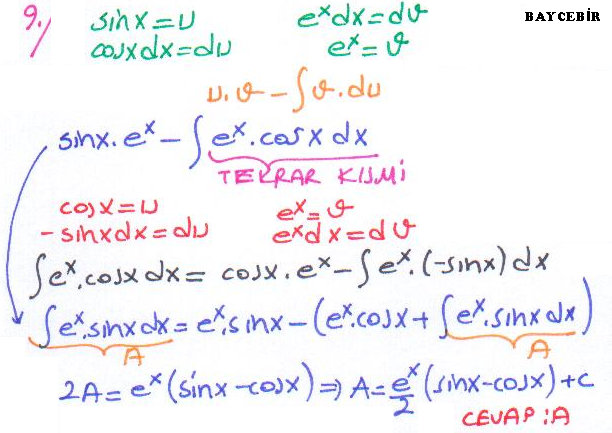 9.) sinx=u e^x dx=dv BAYCEBİR
cosx dx=du e^x=v
u.v-∫v.du
sinx.e^x-∫e^x.cosx dx
TEKRAR KISMİ
cosx=u e^x=v
-sinx dx=du e^x dx=dv
∫e^x.cosx dx= cosx.e^x-∫e^x.(-sinx)dx
∫e^x.sinx dx= e^x.sinx-(e^x.cosx+∫e^x.sinx dx)
A A
2A= e^x(sinx-cosx)⇒A= e^x/2 (sinx-cosx)+c
CEVAP:A